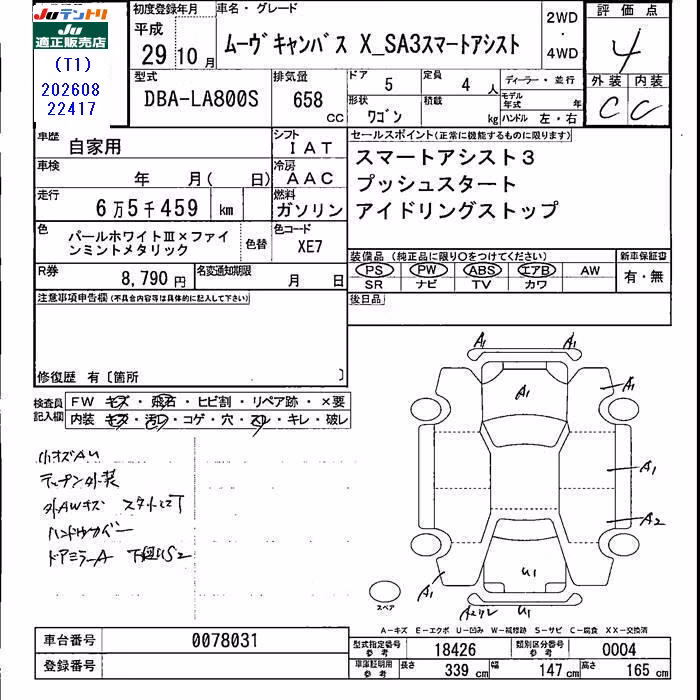 Juテントリ
Ju
適正販売店
(T1)
202608
22417
初度登録年月
平成
29 10月
車名・グレード
ムーヴキャンバス X_SA3スマートアシスト
2WD
・
4WD
評価点
4
外装 内装
C C
型式
DBA-LA800S
排気量
658
CC
ドア
5
定員
4 人
形状
ワゴン
積載
kg
ディーラー・並行
モデル年式 年
ハンドル 左・右
車歴
自家用
シフト
IAT
車検
年 月( 日)
冷房
AAC
走行
6万5千459 km
燃料
ガソリン
色
パールホワイトⅢ×ファインミントメタリック
色替
色コード
XE7
R券
8,790 円
名変通知期限
月 日
セールスポイント(正常に機能するものに限ります)
スマートアシスト3
プッシュスタート
アイドリングストップ
装備品(純正品に限り○をつけてください)
新車保証書
PS PW ABS エアB AW
SR ナビ TV カワ
有・無
後日品
注意事項申告欄(不具合内容等は具体的に記入して下さい)
修復歴 有〔箇所 〕
検査員記入欄
FW キズ・飛石・ヒビ割・リペア跡・×要
内装 キズ・汚レ・コゲ・穴・スレ・キレ・破レ
小キズAU
外AWキズ
ハンドルカバー
ドアミラーA
A1
A1
A1
A1
A1
A2
A1
U1
U1
スペア
A-キズ E-エクボ U-凹み W-補修跡 S-サビ C-腐食 XX-交換済
車台番号
0078031
登録番号
型式指定番号参考
18426
類別区分番号参考
0004
車庫証明用参考
長さ 339 cm 幅 147 cm 高さ 165 cm